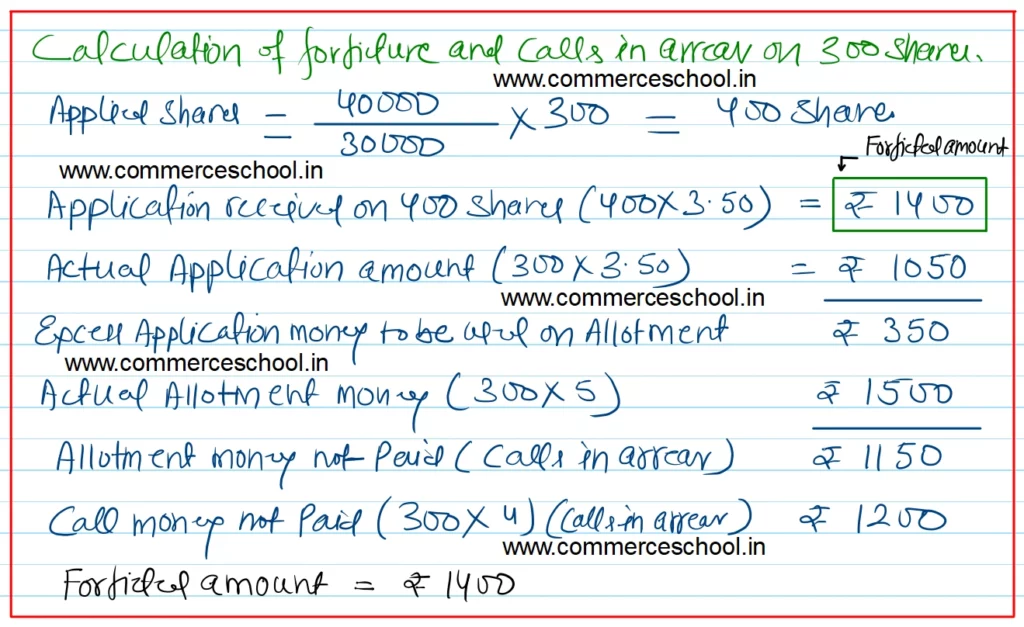 Calculation of forfieture and Calls in arrear on 300 shares.
www.commerceschool.in
Applied Shares = 40000 / 30000 × 300 = 400 Shares
Forfieted amount
www.commerceschool.in
Application received on 400 Shares (400×3.50) = ₹ 1400
Actual Application amount (300×3.50) = ₹ 1050
www.commerceschool.in
Excess Application money to be used on Allotment ₹ 350
www.commerceschool.in
Actual Allotment money (300×5) ₹ 1500
Allotment money not Paid (Calls in arrear) ₹ 1150
Call money not Paid (300×4) (Calls in arrear) ₹ 1200
www.commerceschool.in
Forfieted amount = ₹ 1400